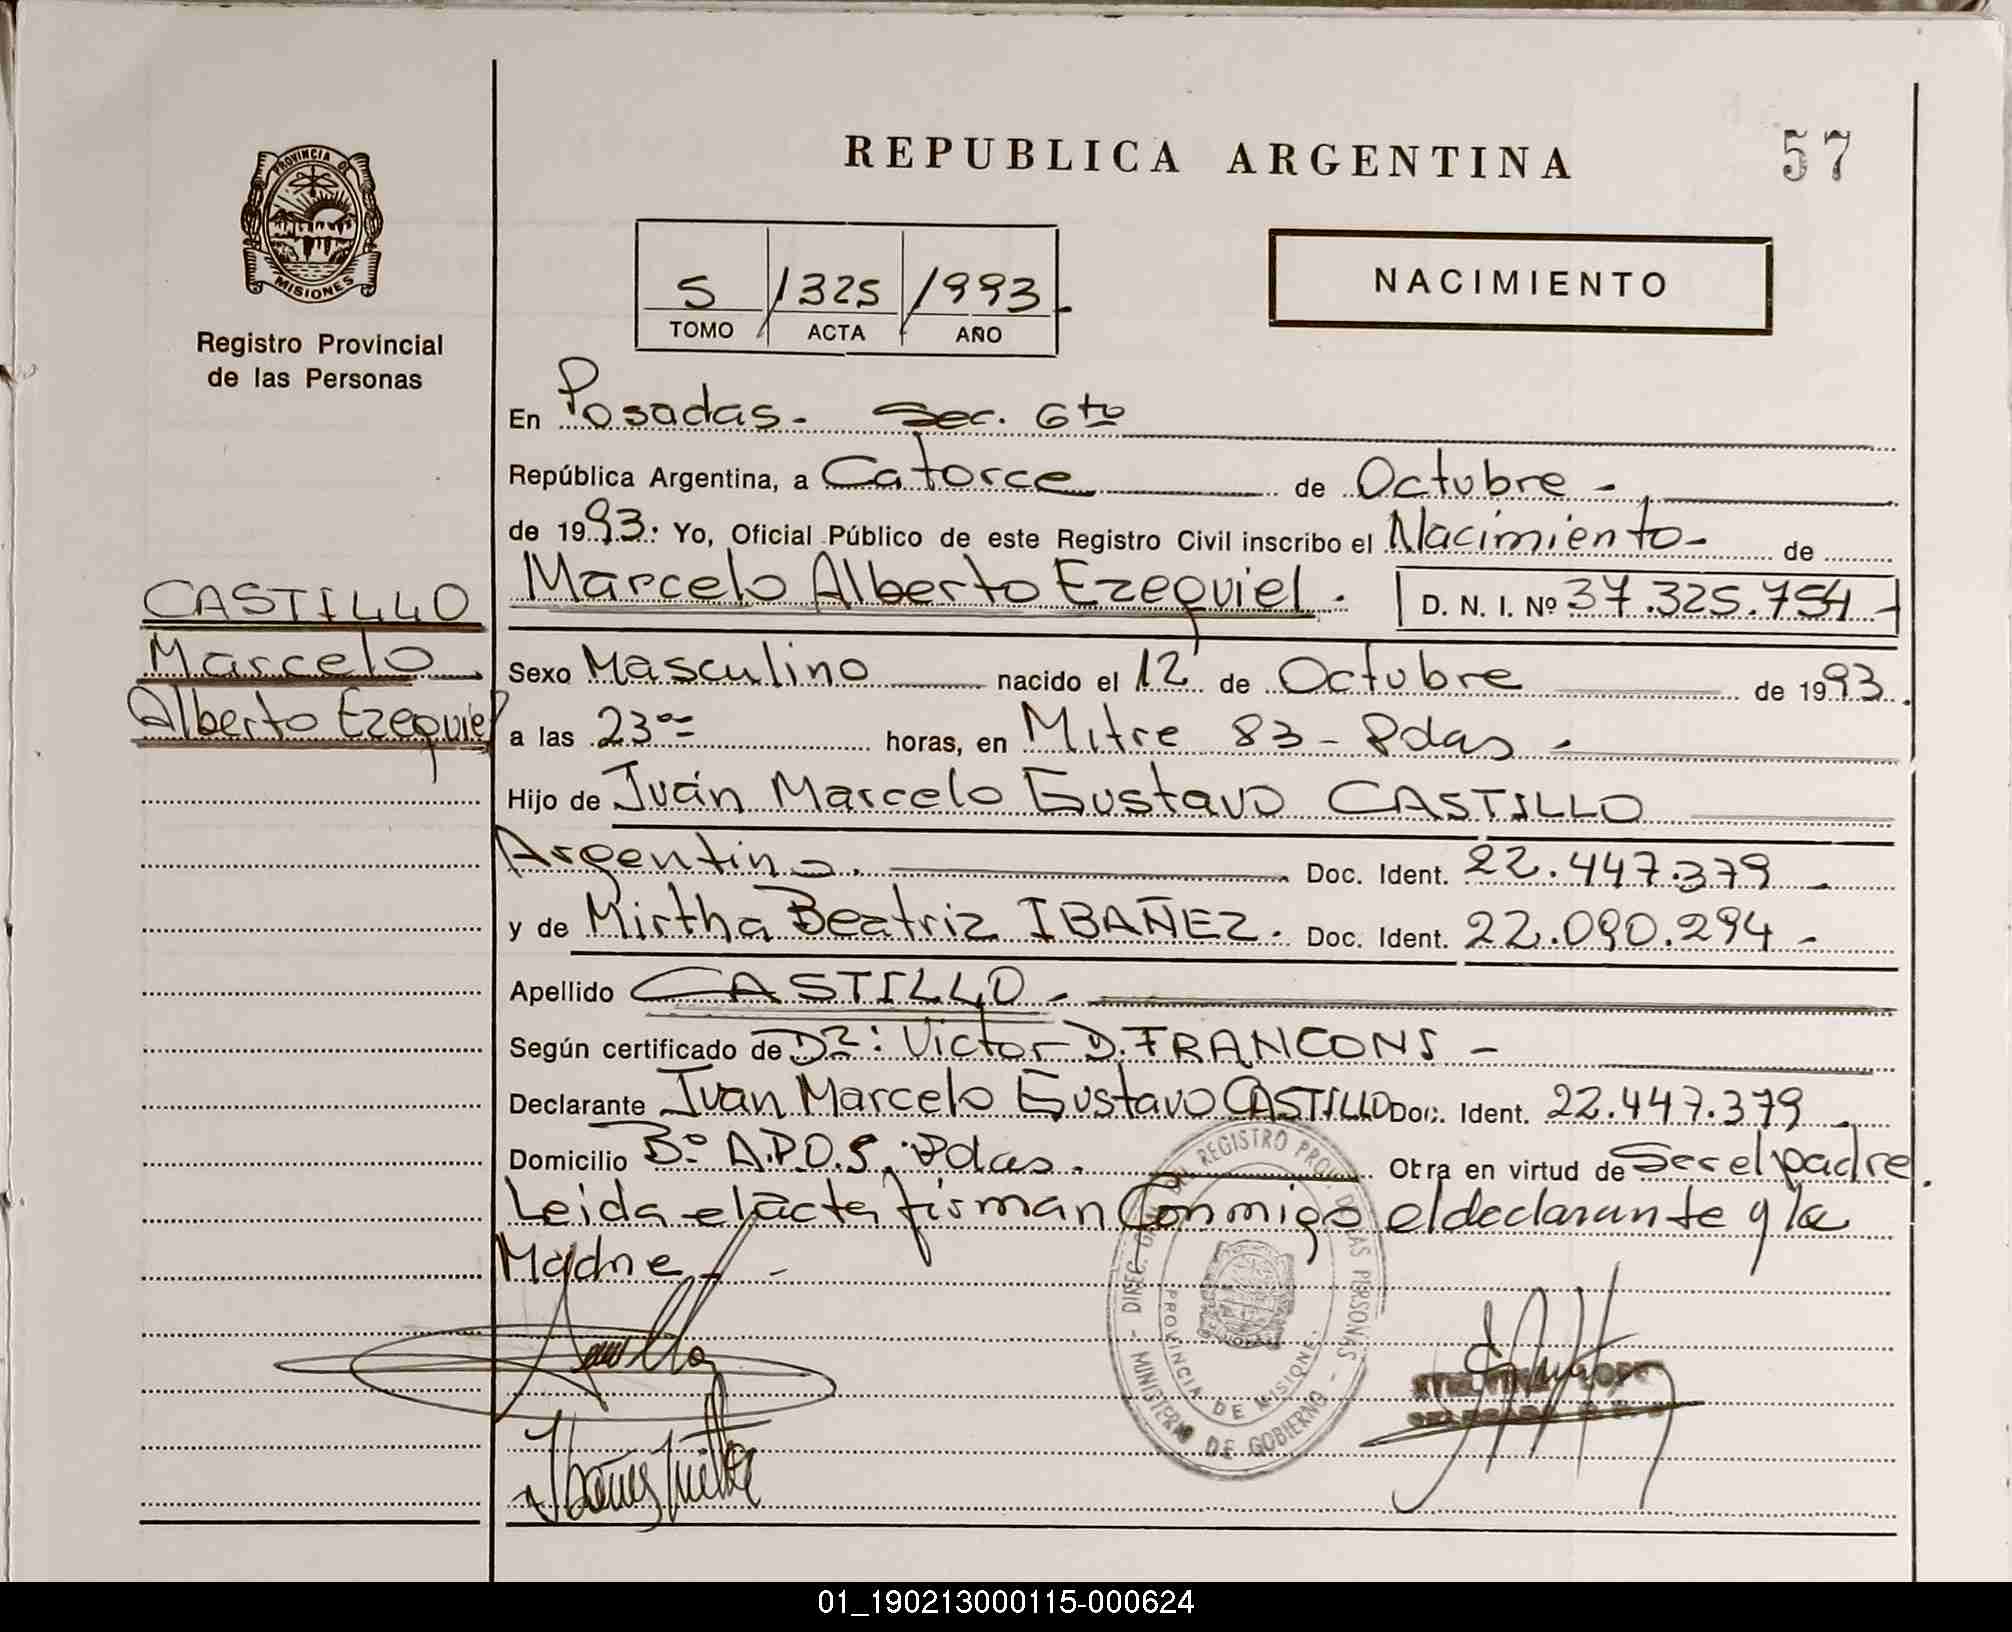 REPUBLICA ARGENTINA
57
PROVINCIA DE
MISIONES
Registro Provincial
de las Personas
5 / 1325 / 1993
TOMO ACTA AÑO
NACIMIENTO
En Posadas. Sec. 6to
República Argentina, a Catorce de Octubre
de 1993. Yo, Oficial Público de este Registro Civil inscribo el Nacimiento de
Marcelo Alberto Ezequiel. D. N. I. Nº 37.325.754
CASTILLO
Marcelo
Alberto Ezequiel
Sexo Masculino nacido el 12 de Octubre de 1993.
a las 23oo horas, en Mitre 83 - Pdas
Hijo de Juán Marcelo Gustavo CASTILLO
Argentino. Doc. Ident. 22.447.379
y de Mirtha Beatriz IBAÑEZ. Doc. Ident. 22.090.294
Apellido CASTILLO
Según certificado de Dr: Victor D. FRANCONS
Declarante Juan Marcelo Gustavo CASTILLO Doc. Ident. 22.447.379
Domicilio Bº A.P.O.S. Pdas. Otra en virtud de Ser el padre.
Leida el acta firman Conmigo el declarante y la
Madre
DIREC. GRAL. DEL REGISTRO PROV. DE LAS PERSONAS
MINISTERIO DE GOBIERNO
PROVINCIA DE MISIONES
01_190213000115-000624